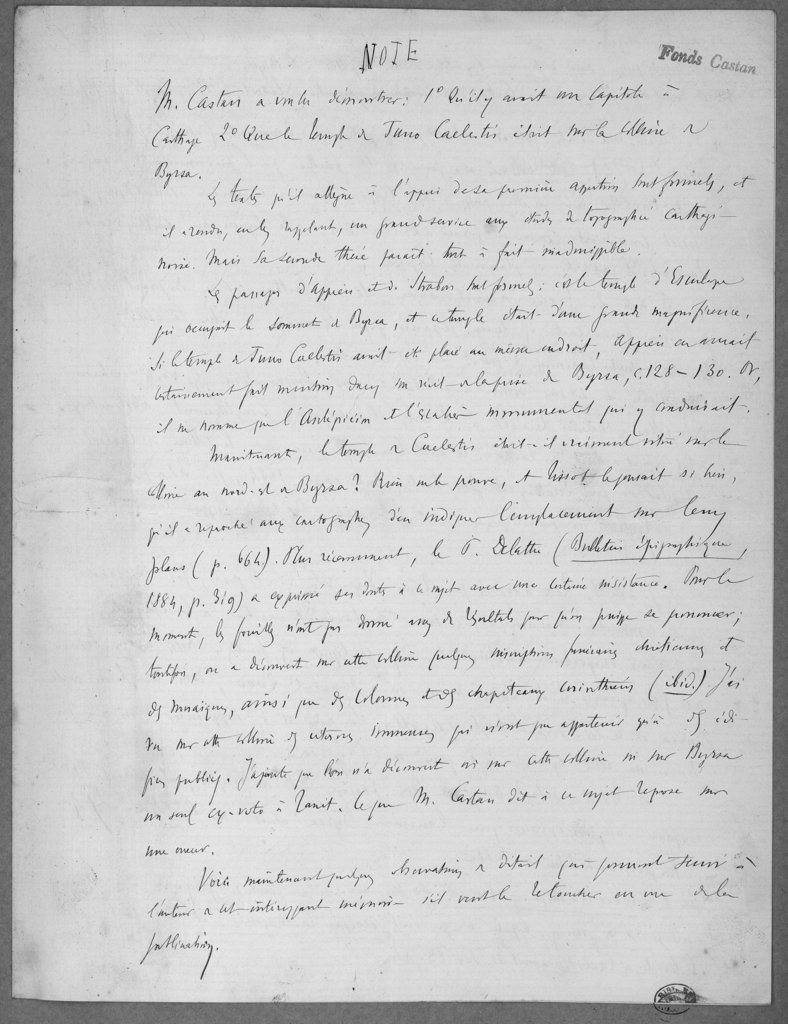 NOTE
Fonds Castan
M. Castan a voulu démontrer : 1° Qu'il y avait un Capitole à
Carthage 2° Que le temple de Juno Caelestis était sur la colline de
Byrsa.
Les textes qu'il allègue à l'appui de sa première assertion sont formels, et
il a rendu, en les rappelant, un grand service aux études de topographie carthagi-
noise. Mais sa seconde thèse paraît tout à fait inadmissible.
Les passages d'Appien et de Strabon sont formels : c'est le temple d'Esculape
qui occupait le sommet de Byrsa, et ce temple était d'une grande magnificence.
Si le temple de Juno Caelestis avait été placé au même endroit, Appien en aurait
certainement fait mention dans son récit de la prise de Byrsa, c. 128-130. Or,
il ne nomme que l'Asklépieion et l'escalier monumental qui y conduisait.
Maintenant, le temple de Caelestis était-il vraiment situé sur la
colline au nord-est de Byrsa? Rien ne le prouve, et Tissot le pensait si bien,
qu'il a reproché aux cartographes d'en indiquer l'emplacement sur leurs
plans (p. 664). Plus récemment, le P. Delattre (Bulletin épigraphique,
1884, p. 319) a exprimé ses doutes à ce sujet avec une certaine insistance. Pour le
moment, les fouilles n'ont pas donné assez de résultats pour qu'on puisse se prononcer;
toutefois, on a découvert sur cette colline quelques inscriptions funéraires chrétiennes et
des mosaïques, ainsi que des colonnes et des chapiteaux corinthiens (ibid.) J'ai
vu sur cette colline des citernes immenses qui n'ont pu appartenir qu'à des édi-
fices publics. J'ajoute que l'on n'a découvert ni sur cette colline ni sur Byrsa
un seul ex-voto à Tanit. Ce que M. Castan dit à ce sujet repose sur
une erreur.
Voici maintenant quelques observations de détail qui pourront servir à
l'auteur de cet intéressant mémoire s'il veut le retoucher en vue de la
publication.